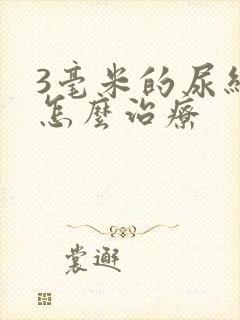 3毫米的尿結
怎麼治療
裳遜